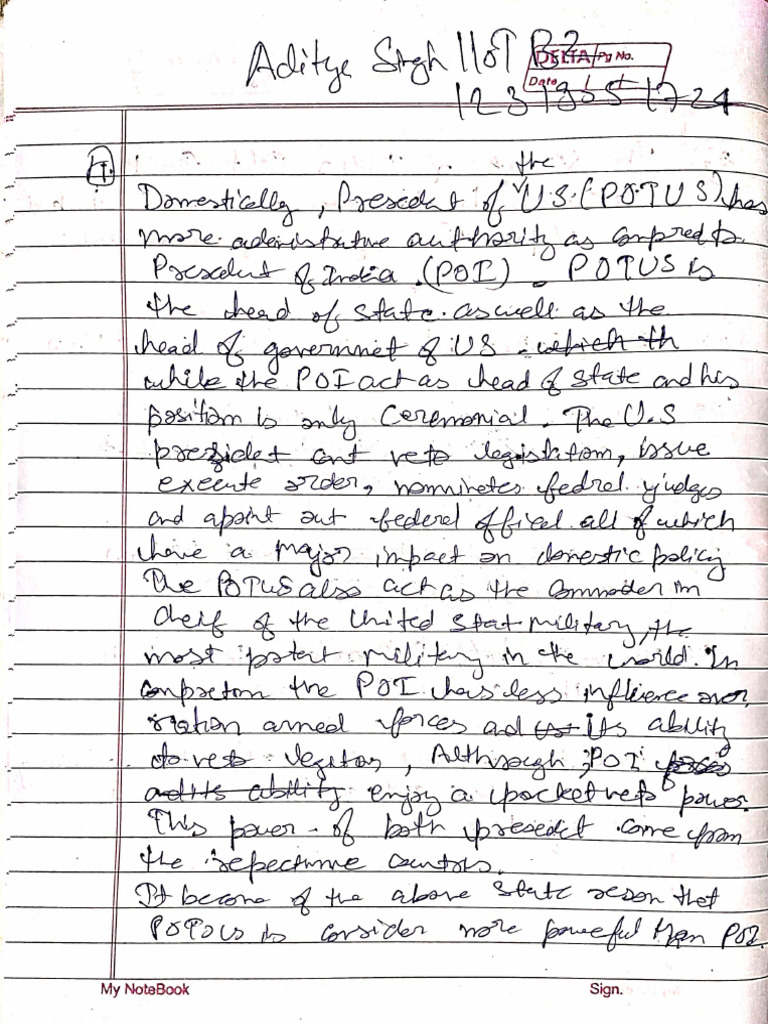 Aditya Singh IIOT B2
DELTA Pg No.
Date
12313551724
the
Domestically, Presedent of U.S. (POTUS) has
more administrative authority as compred to
Presedent of India (POI). POTUS is
the head of state as well as the
head of governmet of US. which th
while the POI act as head of state and his
position is only Ceremonial. The U.S
president cant veto legislation, issue
execute order, nominetes fedrel judges
and apoint out federel offical all of which
have a major impact on domestic policy
The POTUS also act as the Commoder in
Cheif of the United Stat military, the
most potent military in the world. In
the POI has less influence over
nation armed forces and its ability
to veto, Although, POI forces
and its ability enjoy a pocket veto power.
This power of both presedet come from
the respective
It becone of the above state reson thet
POTUS is consider more powefeul than POI.
My NoteBook
Sign.